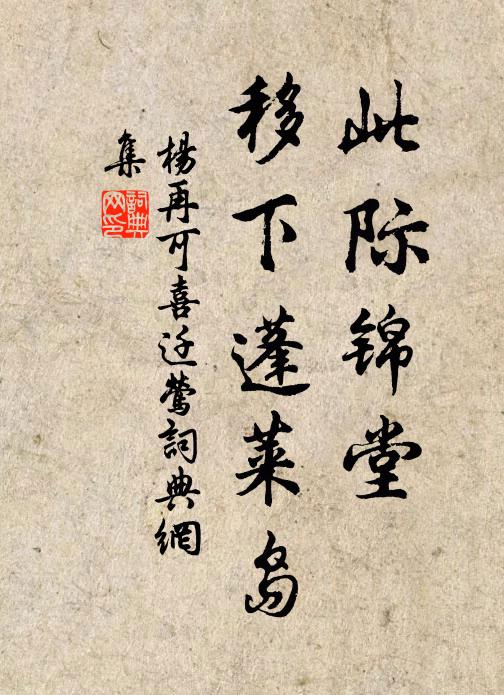 此际锦堂
移下蓬莱岛
杨再可喜迁莺詞典網
集
詞典
网印